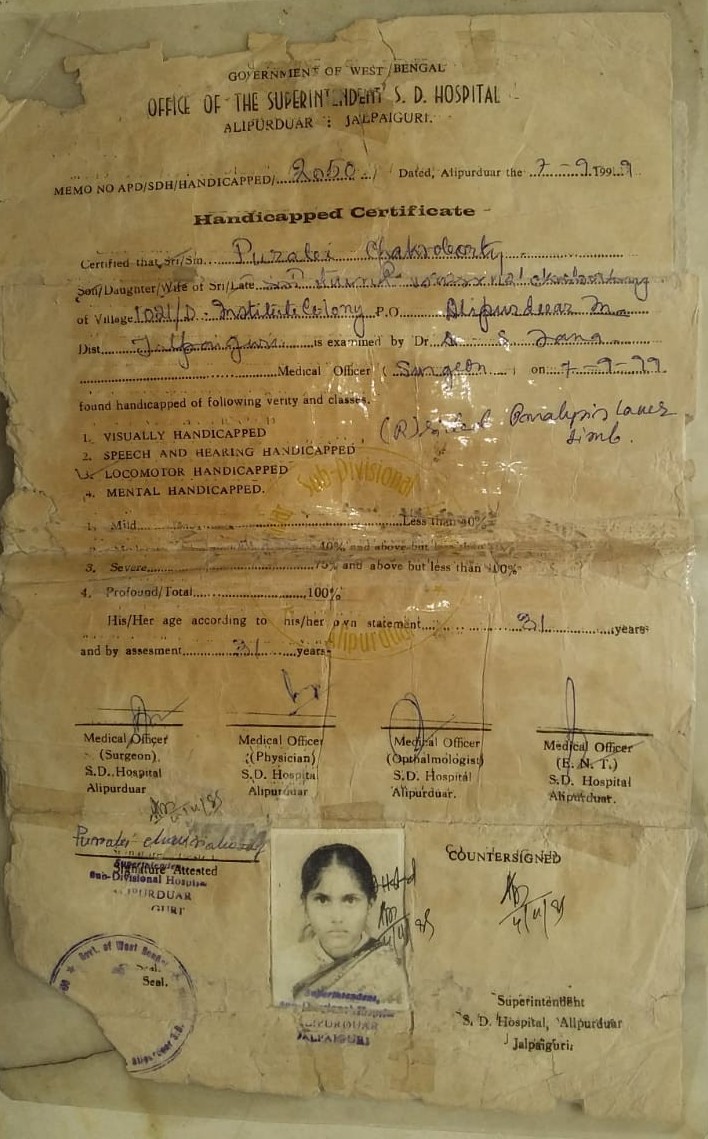 GOVERNMENT OF WEST BENGAL
OFFICE OF THE SUPERINTENDENT S. D. HOSPITAL
ALIPURDUAR : JALPAIGURI.
MEMO NO APD/SDH/HANDICAPPED/ 2050 / Dated, Alipurduar the 7-9-1999
Handicapped Certificate
Certified that Sri/Sm. Purabi Chakroborty
Son/Daughter/Wife of Sri/Late
of Village Institute Colony P.O. Alipurduar
Dist Jalpaiguri is examined by Dr. S Jana
Medical Officer ( Surgeon ) on 7-9-99.
found handicapped of following verity and classes.
(R) sided Paralysis Lower
limb.
1. VISUALLY HANDICAPPED
2. SPEECH AND HEARING HANDICAPPED
3. LOCOMOTOR HANDICAPPED
4. MENTAL HANDICAPPED.
Sub-Divisional
1. Mild Less than 40%
40% and above but less than
3. Severe 75% and above but less than 100%
4. Profound/Total 100%
His/Her age according to his/her own statement 31 years
Alipurduar
and by assesment 31 years
Medical Officer Medical Officer Medical Officer Medical Officer
(Surgeon) (Physician) (Opthalmologist) (E. N. T.)
S.D. Hospital S.D. Hospital S.D. Hospital S.D. Hospital
Alipurduar Alipurduar Alipurduar. Alipurduar.
COUNTERSIGNED
Signature Attested
Superintendent
Sub-Divisional Hospital
ALIPURDUAR
Govt. of West Bengal
Seal.
Seal.
Alipurduar S.D.
Superintendent,
Sub-Divisional Hospital
ALIPURDUAR
JALPAIGURI
Superintendent
S. D. Hospital, Alipurduar
Jalpaiguri